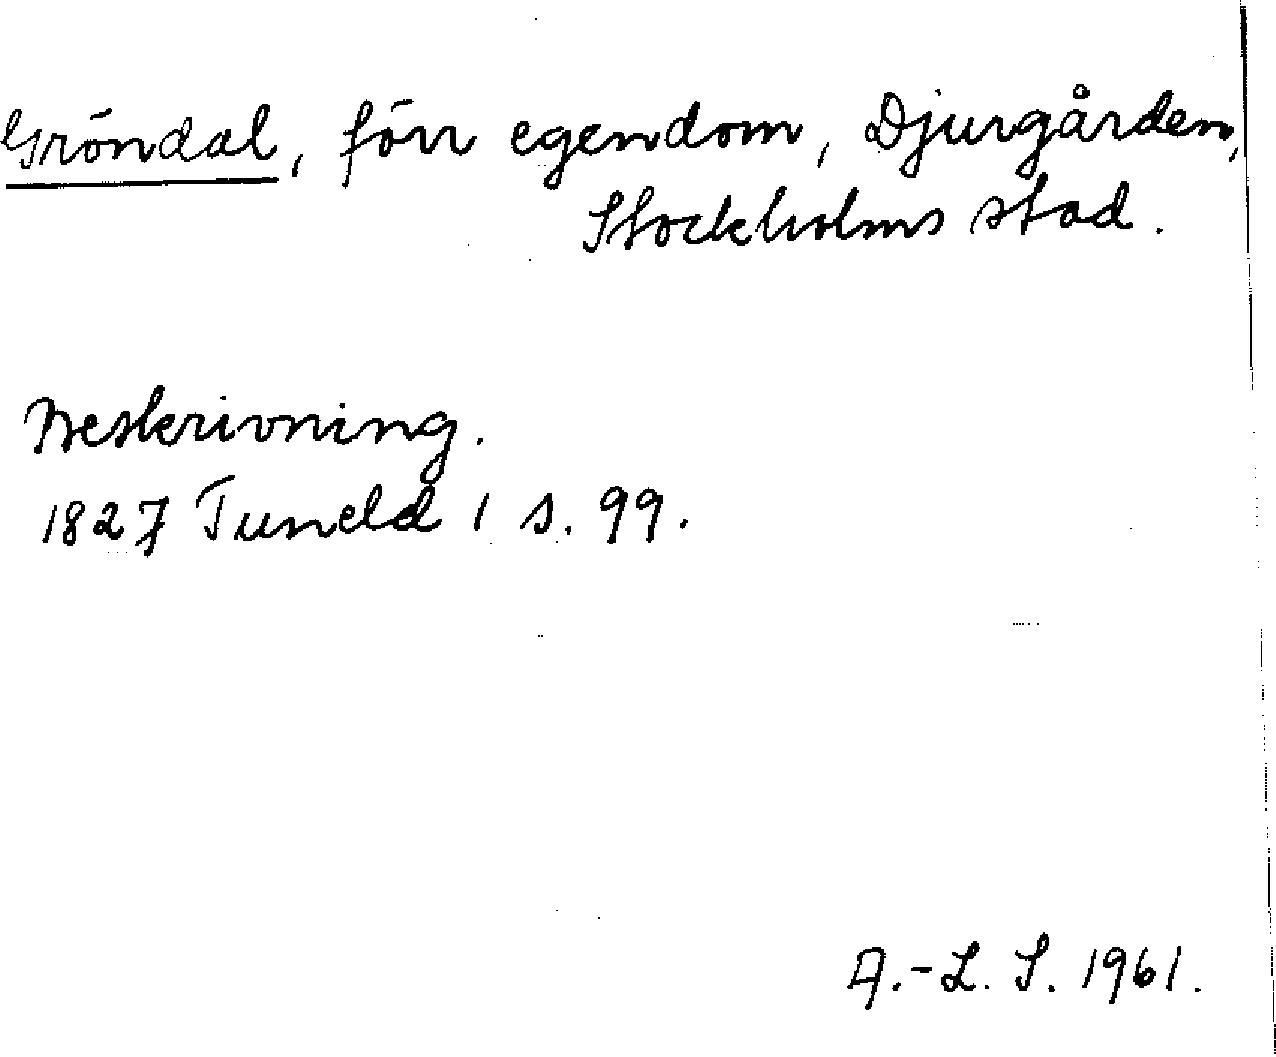 Gröndal, förr egendom, Djurgården,
Stockholms stad.
Beskrivning.
1827 Tuneld 1 s. 99.
A.-L. S. 1961.